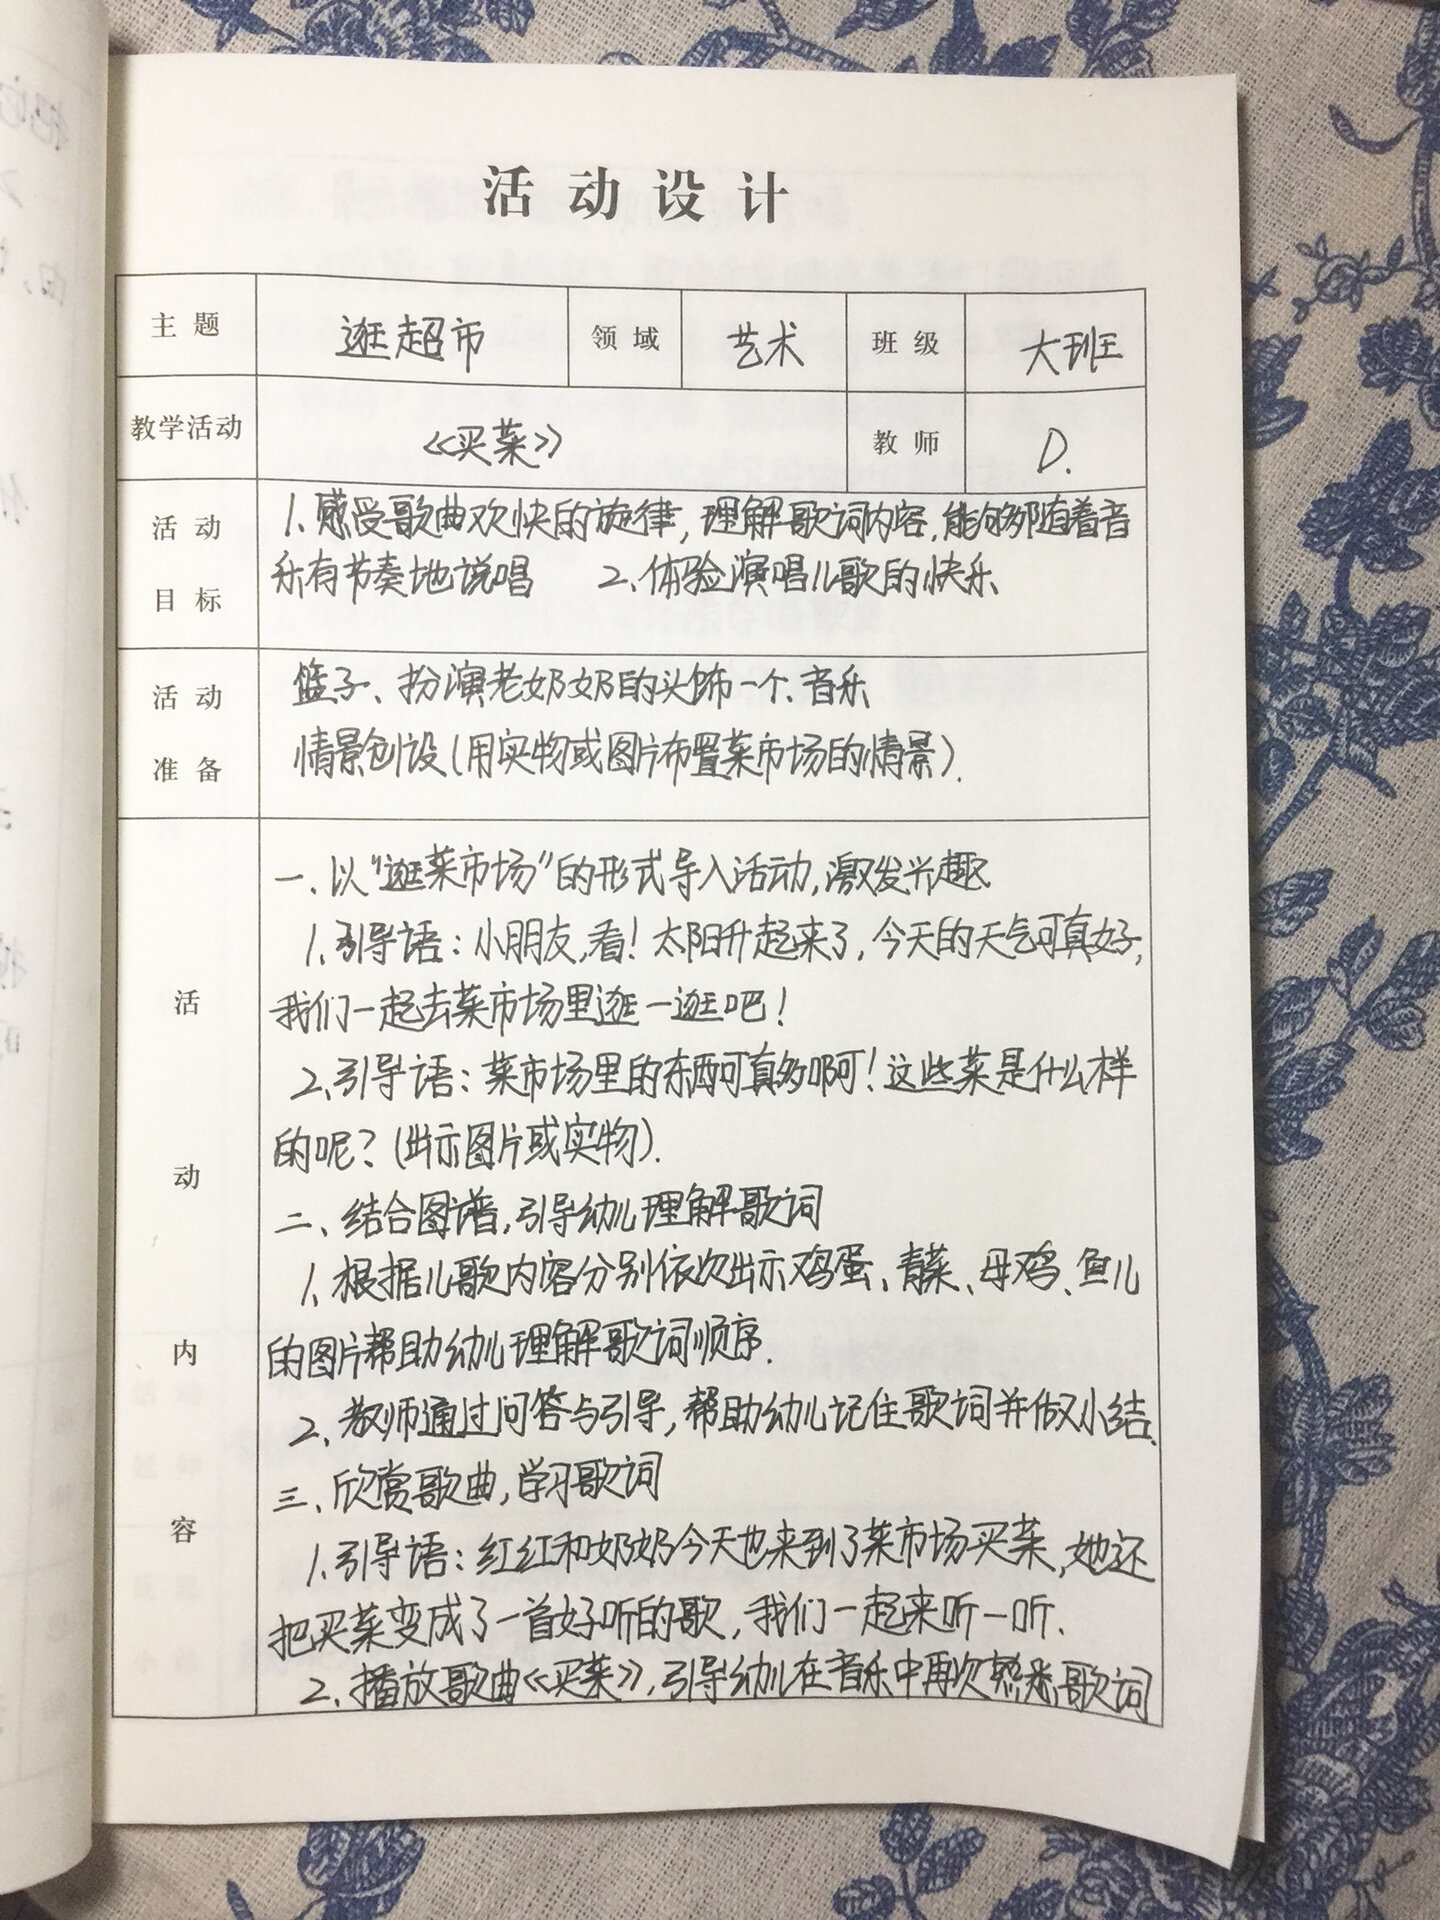 活动设计
主题 逛超市 领域 艺术 班级 大班
教学活动 《买菜》 教师 D.
活动目标
1.感受歌曲欢快的旋律,理解歌词内容,能够随着音
乐有节奏地说唱 2.体验演唱儿歌的快乐
活动准备
篮子、扮演老奶奶的头饰一个、音乐
情景创设(用实物或图片布置菜市场的情景).
活动内容
一.以"逛菜市场"的形式导入活动,激发兴趣
1.引导语:小朋友,看!太阳升起来了,今天的天气可真好,
我们一起去菜市场里逛一逛吧!
2.引导语:菜市场里的东西可真多啊!这些菜是什么样
的呢?(出示图片或实物).
二、结合图谱,引导幼儿理解歌词
1.根据儿歌内容分别依次出示鸡蛋、青菜、母鸡、鱼儿
的图片帮助幼儿理解歌词顺序.
2.教师通过问答与引导,帮助幼儿记住歌词并做小结.
三、欣赏歌曲,学习歌词
1.引导语:红红和奶奶今天也来到了菜市场买菜,她还
把买菜变成了一首好听的歌,我们一起来听一听.
2.播放歌曲《买菜》,引导幼儿在音乐中再次熟悉歌词